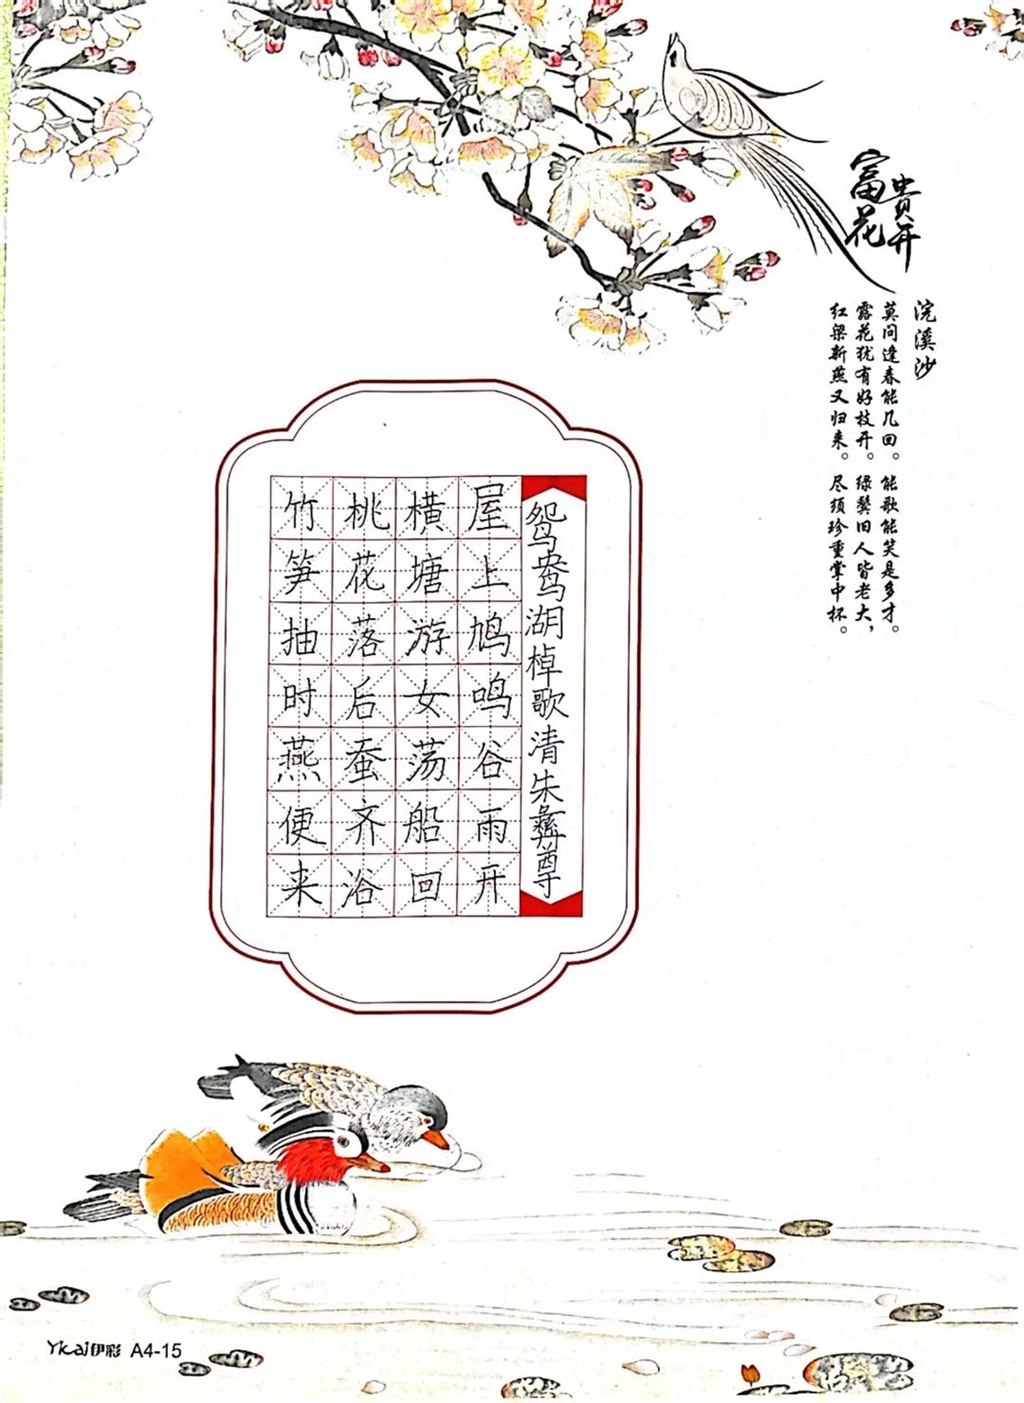 富贵花开
浣溪沙
莫问逢春能几回。能歌能笑是多才。
露花犹有好枝开。绿鬓旧人皆老大，
红梁新燕又归来。尽须珍重掌中杯。
鸳鸯湖棹歌清朱彝尊
屋上鸠鸣谷雨开
横塘游女荡船回
桃花落后蚕齐浴
竹笋抽时燕便来
Ykai伊彩 A4-15